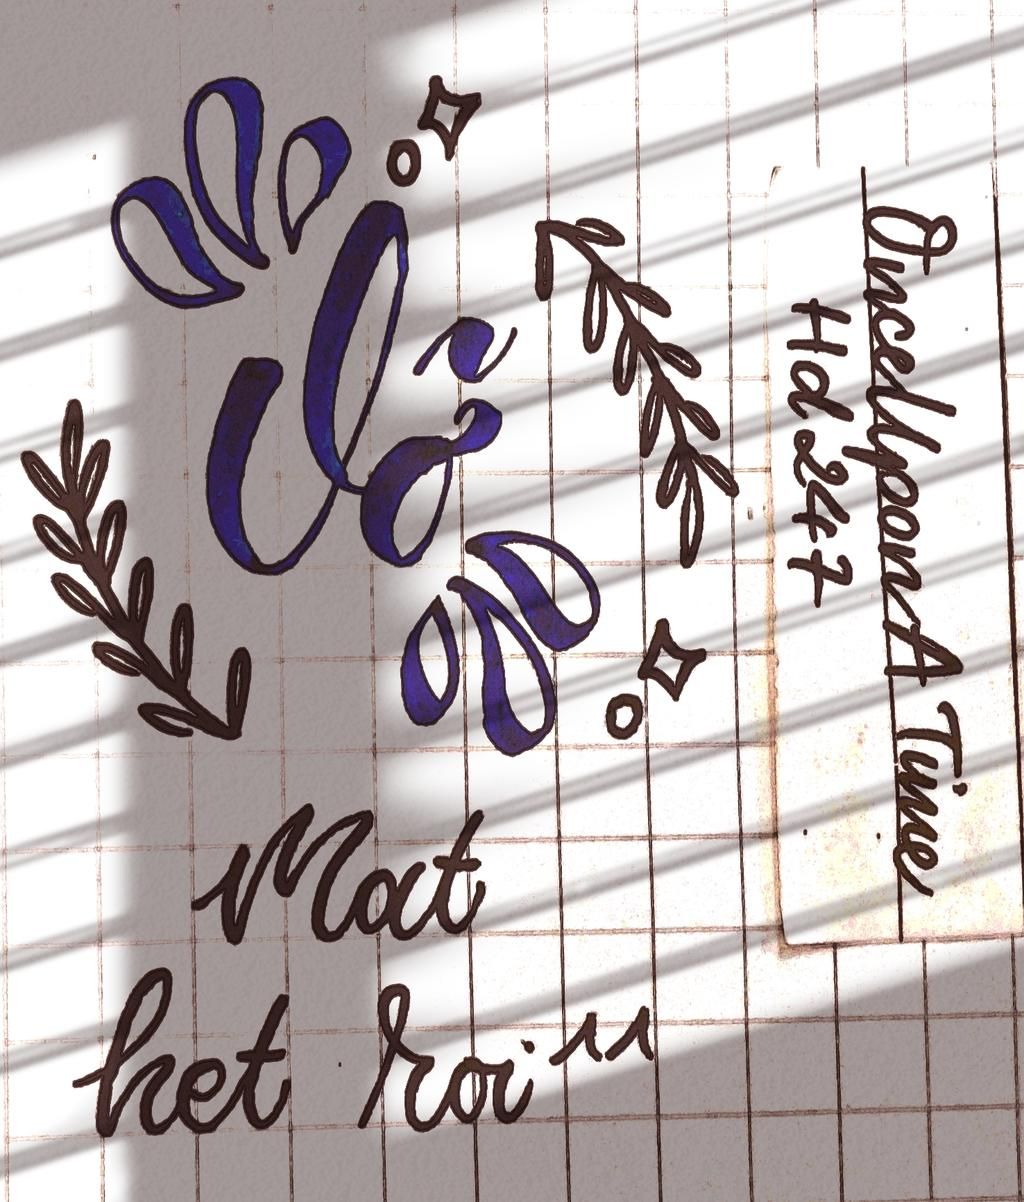 Mat
het roi"
OnceUponA Time
Hd247